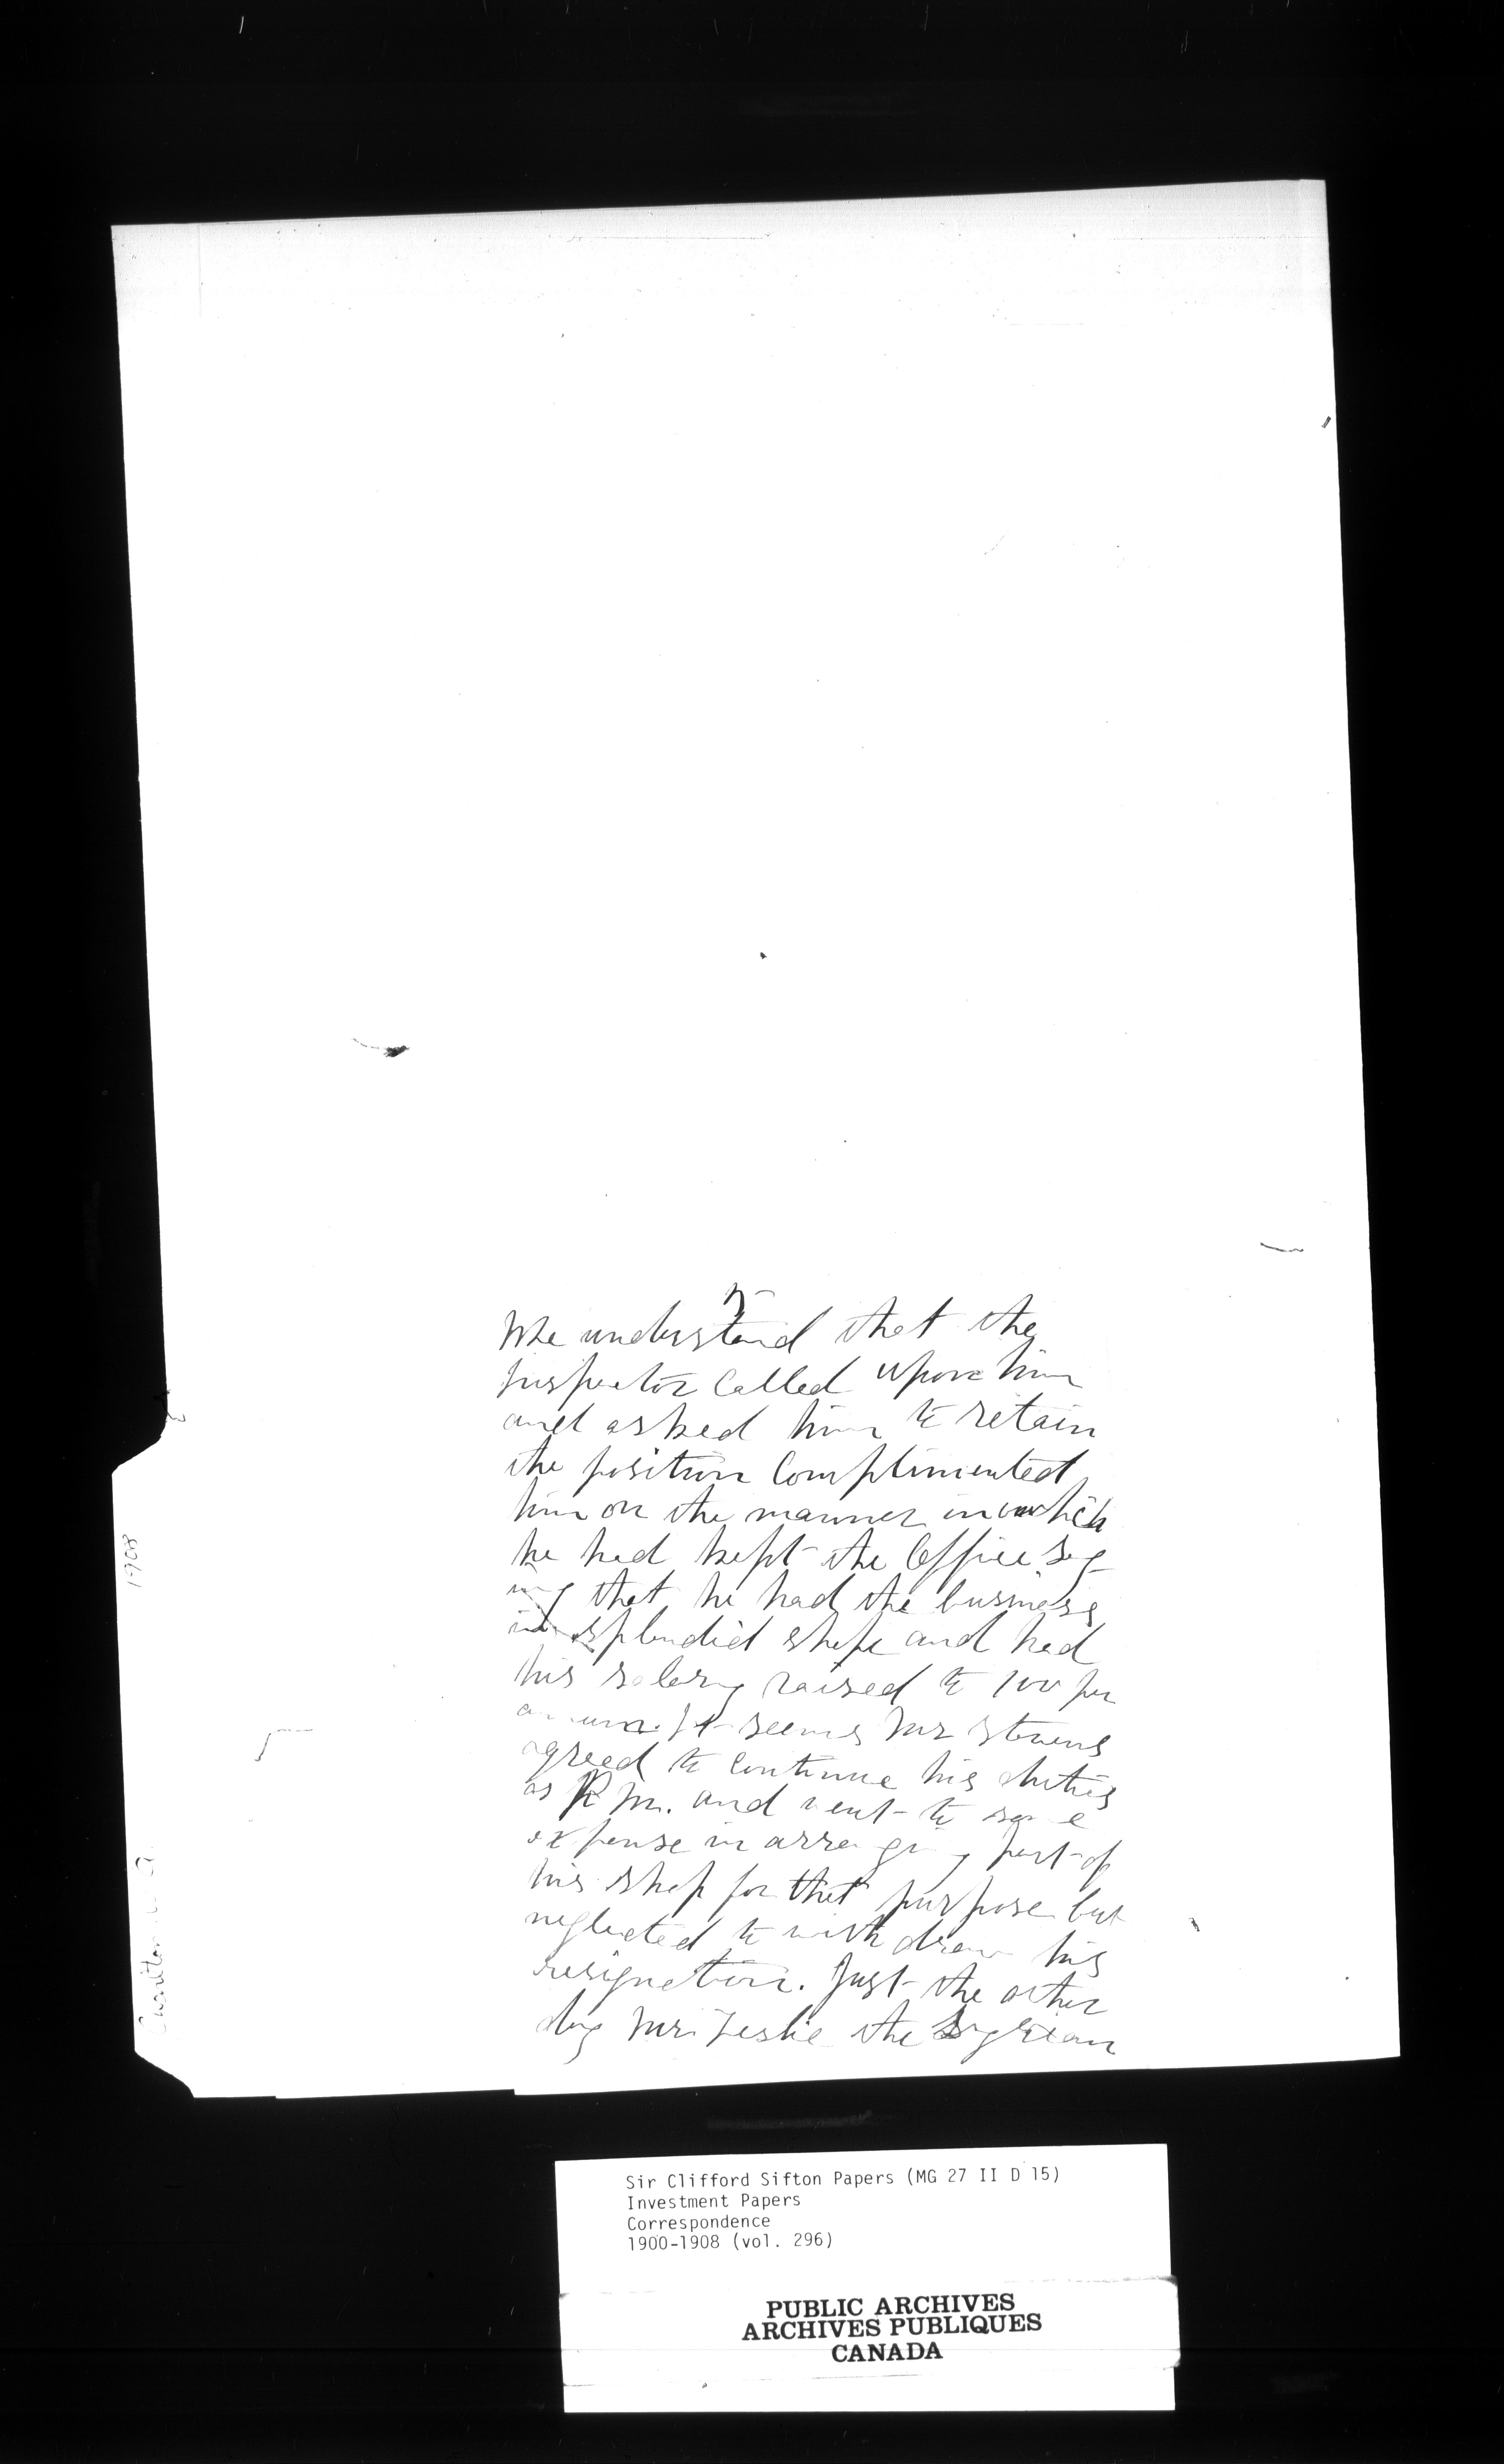 We understand that the
Inspector called upon him
and asked him to retain
the position Complimented
him on the manner in which
he had kept the Office say
ing that he had the business
in splendid shape and had
his salary raised to 100 per
annum. It seems Mr Stevens
agreed to continue his duties
as P M. and went to some
expense in arranging part of
his shop for that purpose but
neglected to withdraw his
resignation. Just the other
day Mr. Leslie the
1908
Sir Clifford Sifton Papers (MG 27 II D 15)
Investment Papers
Correspondence
1900-1908 (vol. 296)
PUBLIC ARCHIVES
ARCHIVES PUBLIQUES
CANADA